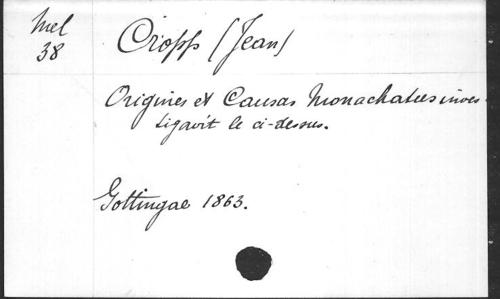 Mel
38
Cropp (Jean)
Origines et Causas Monachatus inves-
tigavit le ci-dessus.
Gottingae 1863.